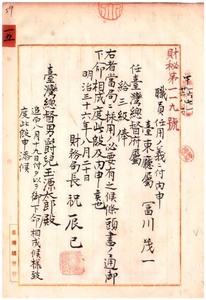 財秘第一一九號
職員任用ノ義ニ付內申
臺東廳屬 富川茂一
任臺灣總督府屬
給三級俸
右者當局ニ採用ノ必要有之候條頭書ノ通御
下命相成度此段及內申候也
明治三十六年八月二十日
財務局長祝辰巳
臺灣總督男爵兒玉源太郎殿
追而八月十九日付ヲ以テ御下命相成候樣致
度此段申添候